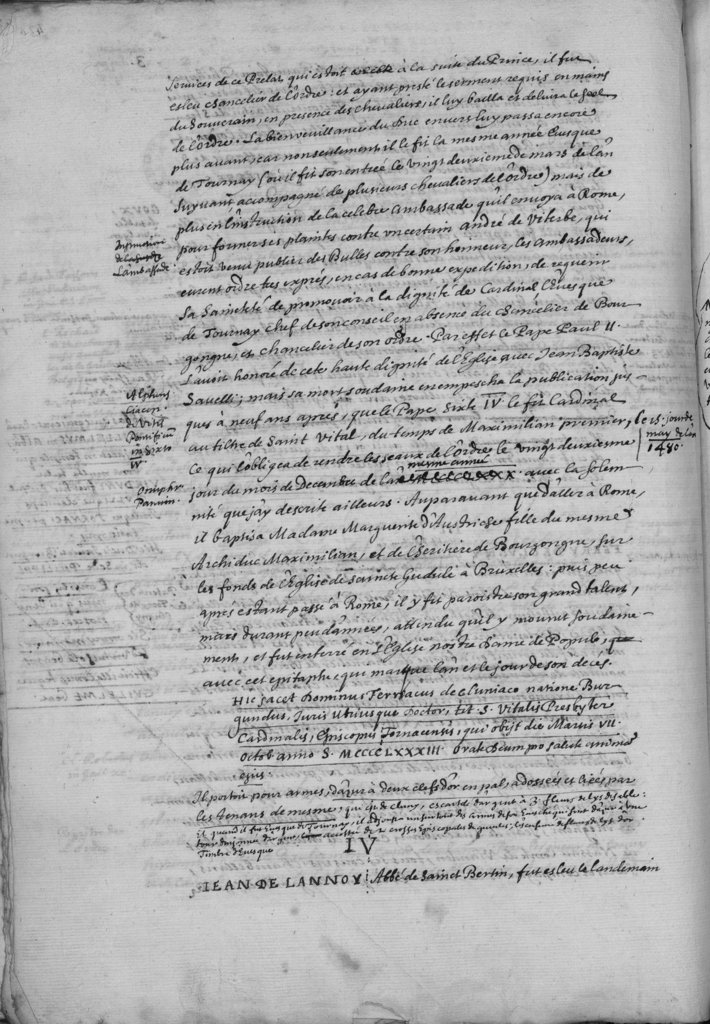 3
services de ce Prelat qui estoit à la suite du Prince, il fut
esleu chancelier de l'ordre: et ayant presté le serment requis en mains
du Souverain, en presence des chevaliers, il luy bailla et delivra le seel
de l'ordre. La bienveuillance du Duc envers luy passa encore
plus avant, car non seulement il le fit la mesme année Evesque
de Tournay (où il fit son entrée le vingt deuxieme de mars de l'an
suyvant, acompagné de plusieurs chevaliers de l'ordre) mais de
plus en l'instruction de la celebre ambassade qu'il envoya à Rome,
pour former ses plaintes contre un certain André de Viterbe, qui
estoit venu publier des Bulles contre son honneur, les ambassadeurs,
eurent ordre tres exprés, en cas de bonne expedition, de requerir
sa Sainteté de promouvoir à la dignité de Cardinal l'Evesque
de Tournay chef de son conseil en absence du Chancelier de Bour
gongne, et chancelier de son ordre. Par effet le Pape Paul II.
l'avoit honoré de cete haute dignité de l'Eglise avec Jean Baptiste
Savelli; mais sa mort soudaine en empescha la publication jus
ques à neuf ans aprés, que le Pape Sixte IV le fit Cardinal
au tiltre de Saint Vital, du temps de Maximilian premier, le 15. jour de
may de l'an
1480.
Ce qui l'obligea de rendre les seaux de l'ordre le vingt deuxiesme
jour du mois de Decembre de la mesme année avec la solem
nité que j'ay descrite ailleurs. Auparavant que d'aller à Rome,
il baptisa Madame Marguerite d'Austriche fille du mesme
Archiduc Maximilian, et de l'heritiere de Bourgongne, sur
les fonds de l'Eglise de saincte Gudule à Bruxelles: puis peu
aprés estant passé à Rome, il y fit paroistre son grand talent,
mais durant peu d'années, attendu qu'il y mourut soudaine-
ment, et fut enterré en l'Eglise nostre Dame de Populo,
avec cet epitaphe qui marque l'an et le jour de son decés.
Hic jacet Dominus Ferracius de Cluniaco natione Bur
gundus, Juris Utriusque Doctor, tit. S. Vitalis Presbyter
Cardinalis, Episcopus Tornacensis, qui obijt die Martis VII.
octob. anno S. MCCCCLXXXIII. orate Deum pro salute animae
ejus.
Il portoit pour armes, d'azur à deux clefs d'or en pal, adossées et liées par
les tenans de mesme, qui est de Cluny, escartelé d'argent à 3 fleurs de lys de sable:
il quand il fut Evesque de Tournay,
Timbre d'Evesque
IV
JEAN DE LANNOY Abbé de Sainct Bertin, fut esleu le landemain
Instruction
de l'ambassade.
Alphons
Ciacon.
de Vitis
Pontificum
in Sixto
IV
Onuphr.
Panvin.